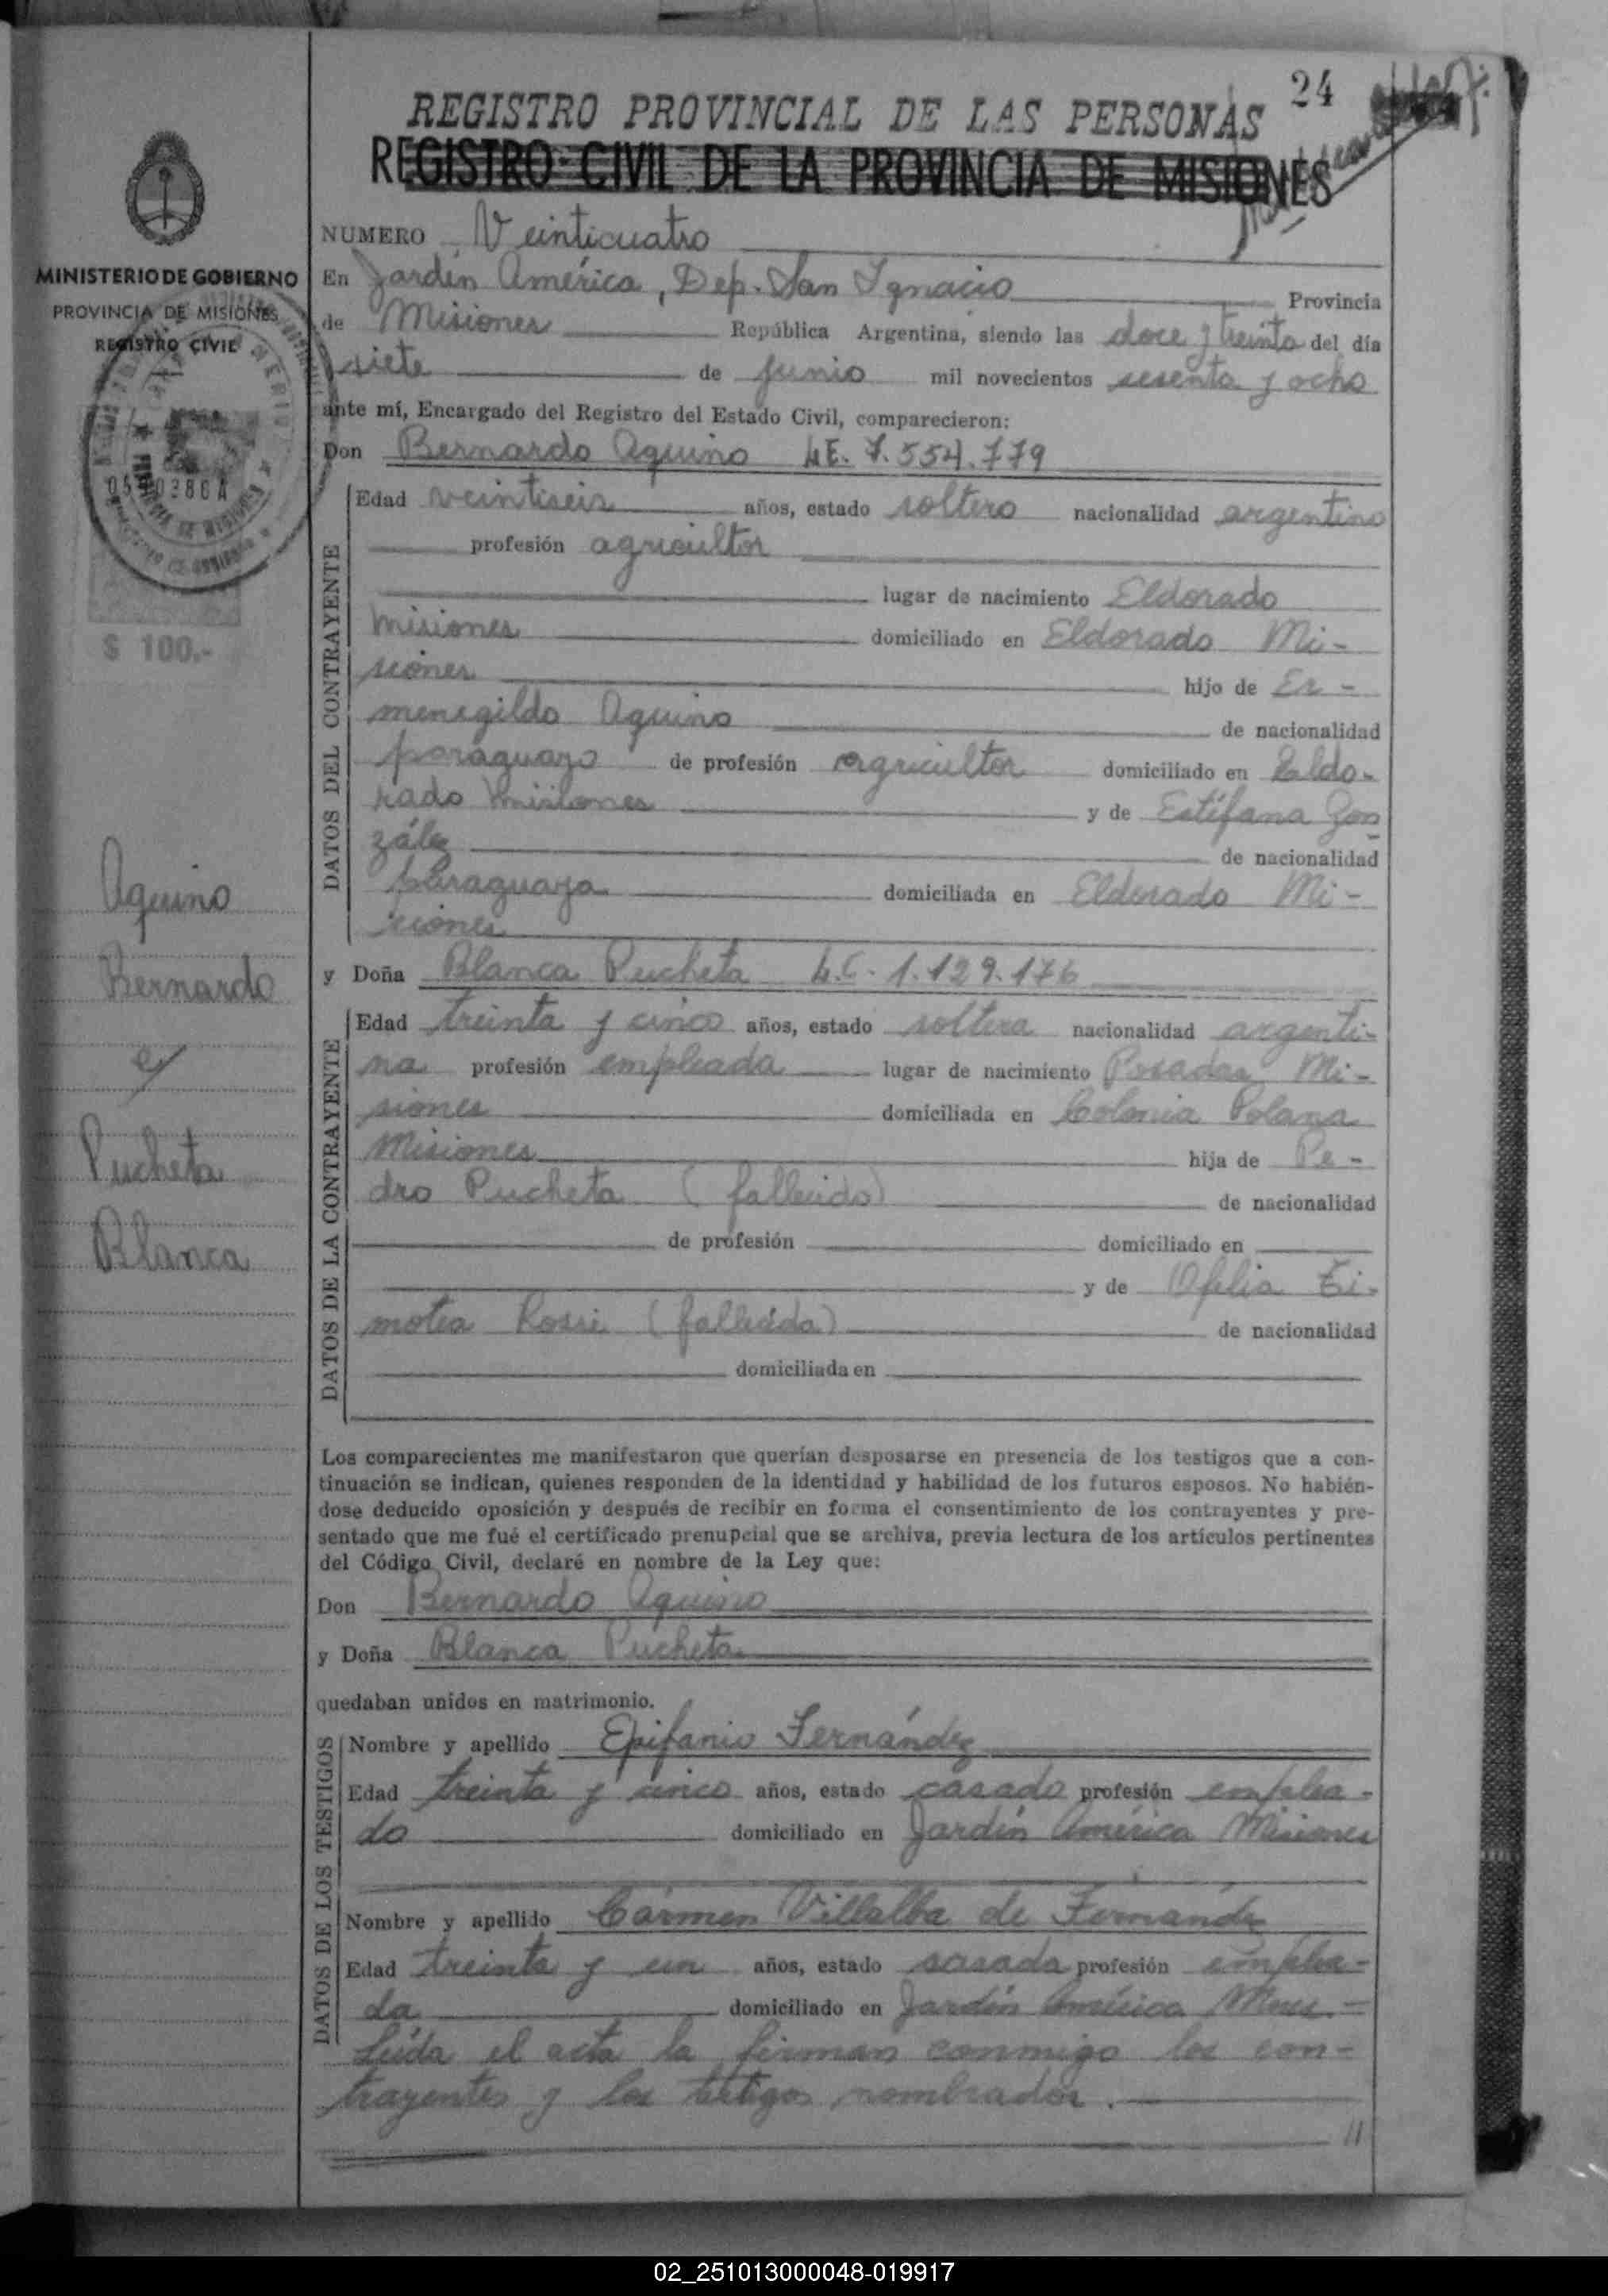 24
REGISTRO PROVINCIAL DE LAS PERSONAS
REGISTRO CIVIL DE LA PROVINCIA DE MISIONES
MINISTERIO DE GOBIERNO
PROVINCIA DE MISIONES
REGISTRO CIVIL
$ 100.-
Aquino
Bernardo
c/
Pucheta
Blanca
NUMERO Veinticuatro
En Jardín América, Dep. San Ignacio Provincia
de Misiones República Argentina, siendo las doce y treinta del día
siete de junio mil novecientos sesenta y ocho
ante mí, Encargado del Registro del Estado Civil, comparecieron:
Don Bernardo Aquino L.E. 7.554.779
DATOS DEL CONTRAYENTE
Edad veintiseis años, estado soltero nacionalidad argentino
profesión agricultor
lugar de nacimiento Eldorado
Misiones domiciliado en Eldorado Mi-
siones hijo de Er-
menegildo Aquino de nacionalidad
paraguayo de profesión agricultor domiciliado en Eldo-
rado Misiones y de Estífana Gon
zález de nacionalidad
paraguaya domiciliada en Eldorado Mi-
siones
y Doña Blanca Pucheta L.C. 1.129.176
DATOS DE LA CONTRAYENTE
Edad treinta y cinco años, estado soltera nacionalidad argenti-
na profesión empleada lugar de nacimiento Posadas Mi-
siones domiciliada en Colonia Polana
Misiones hija de Pe-
dro Pucheta (fallecido) de nacionalidad
de profesión domiciliado en
y de Ofelia Ti-
motea Rossi (fallecida) de nacionalidad
domiciliada en
Los comparecientes me manifestaron que querían desposarse en presencia de los testigos que a con-
tinuación se indican, quienes responden de la identidad y habilidad de los futuros esposos. No habién-
dose deducido oposición y después de recibir en forma el consentimiento de los contrayentes y pre-
sentado que me fué el certificado prenupcial que se archiva, previa lectura de los artículos pertinentes
del Código Civil, declaré en nombre de la Ley que:
Don Bernardo Aquino
y Doña Blanca Pucheta
quedaban unidos en matrimonio.
DATOS DE LOS TESTIGOS
Nombre y apellido Epifanio Fernández
Edad treinta y cinco años, estado casado profesión emplea-
do domiciliado en Jardín América Misiones
Nombre y apellido Cármen Villalba de Fernández
Edad treinta y un años, estado casada profesión emplea-
da domiciliado en Jardín América Mnes.-
Leída el acta la firman conmigo los con-
trayentes y los testigos nombrados.
//
02_251013000048-019917